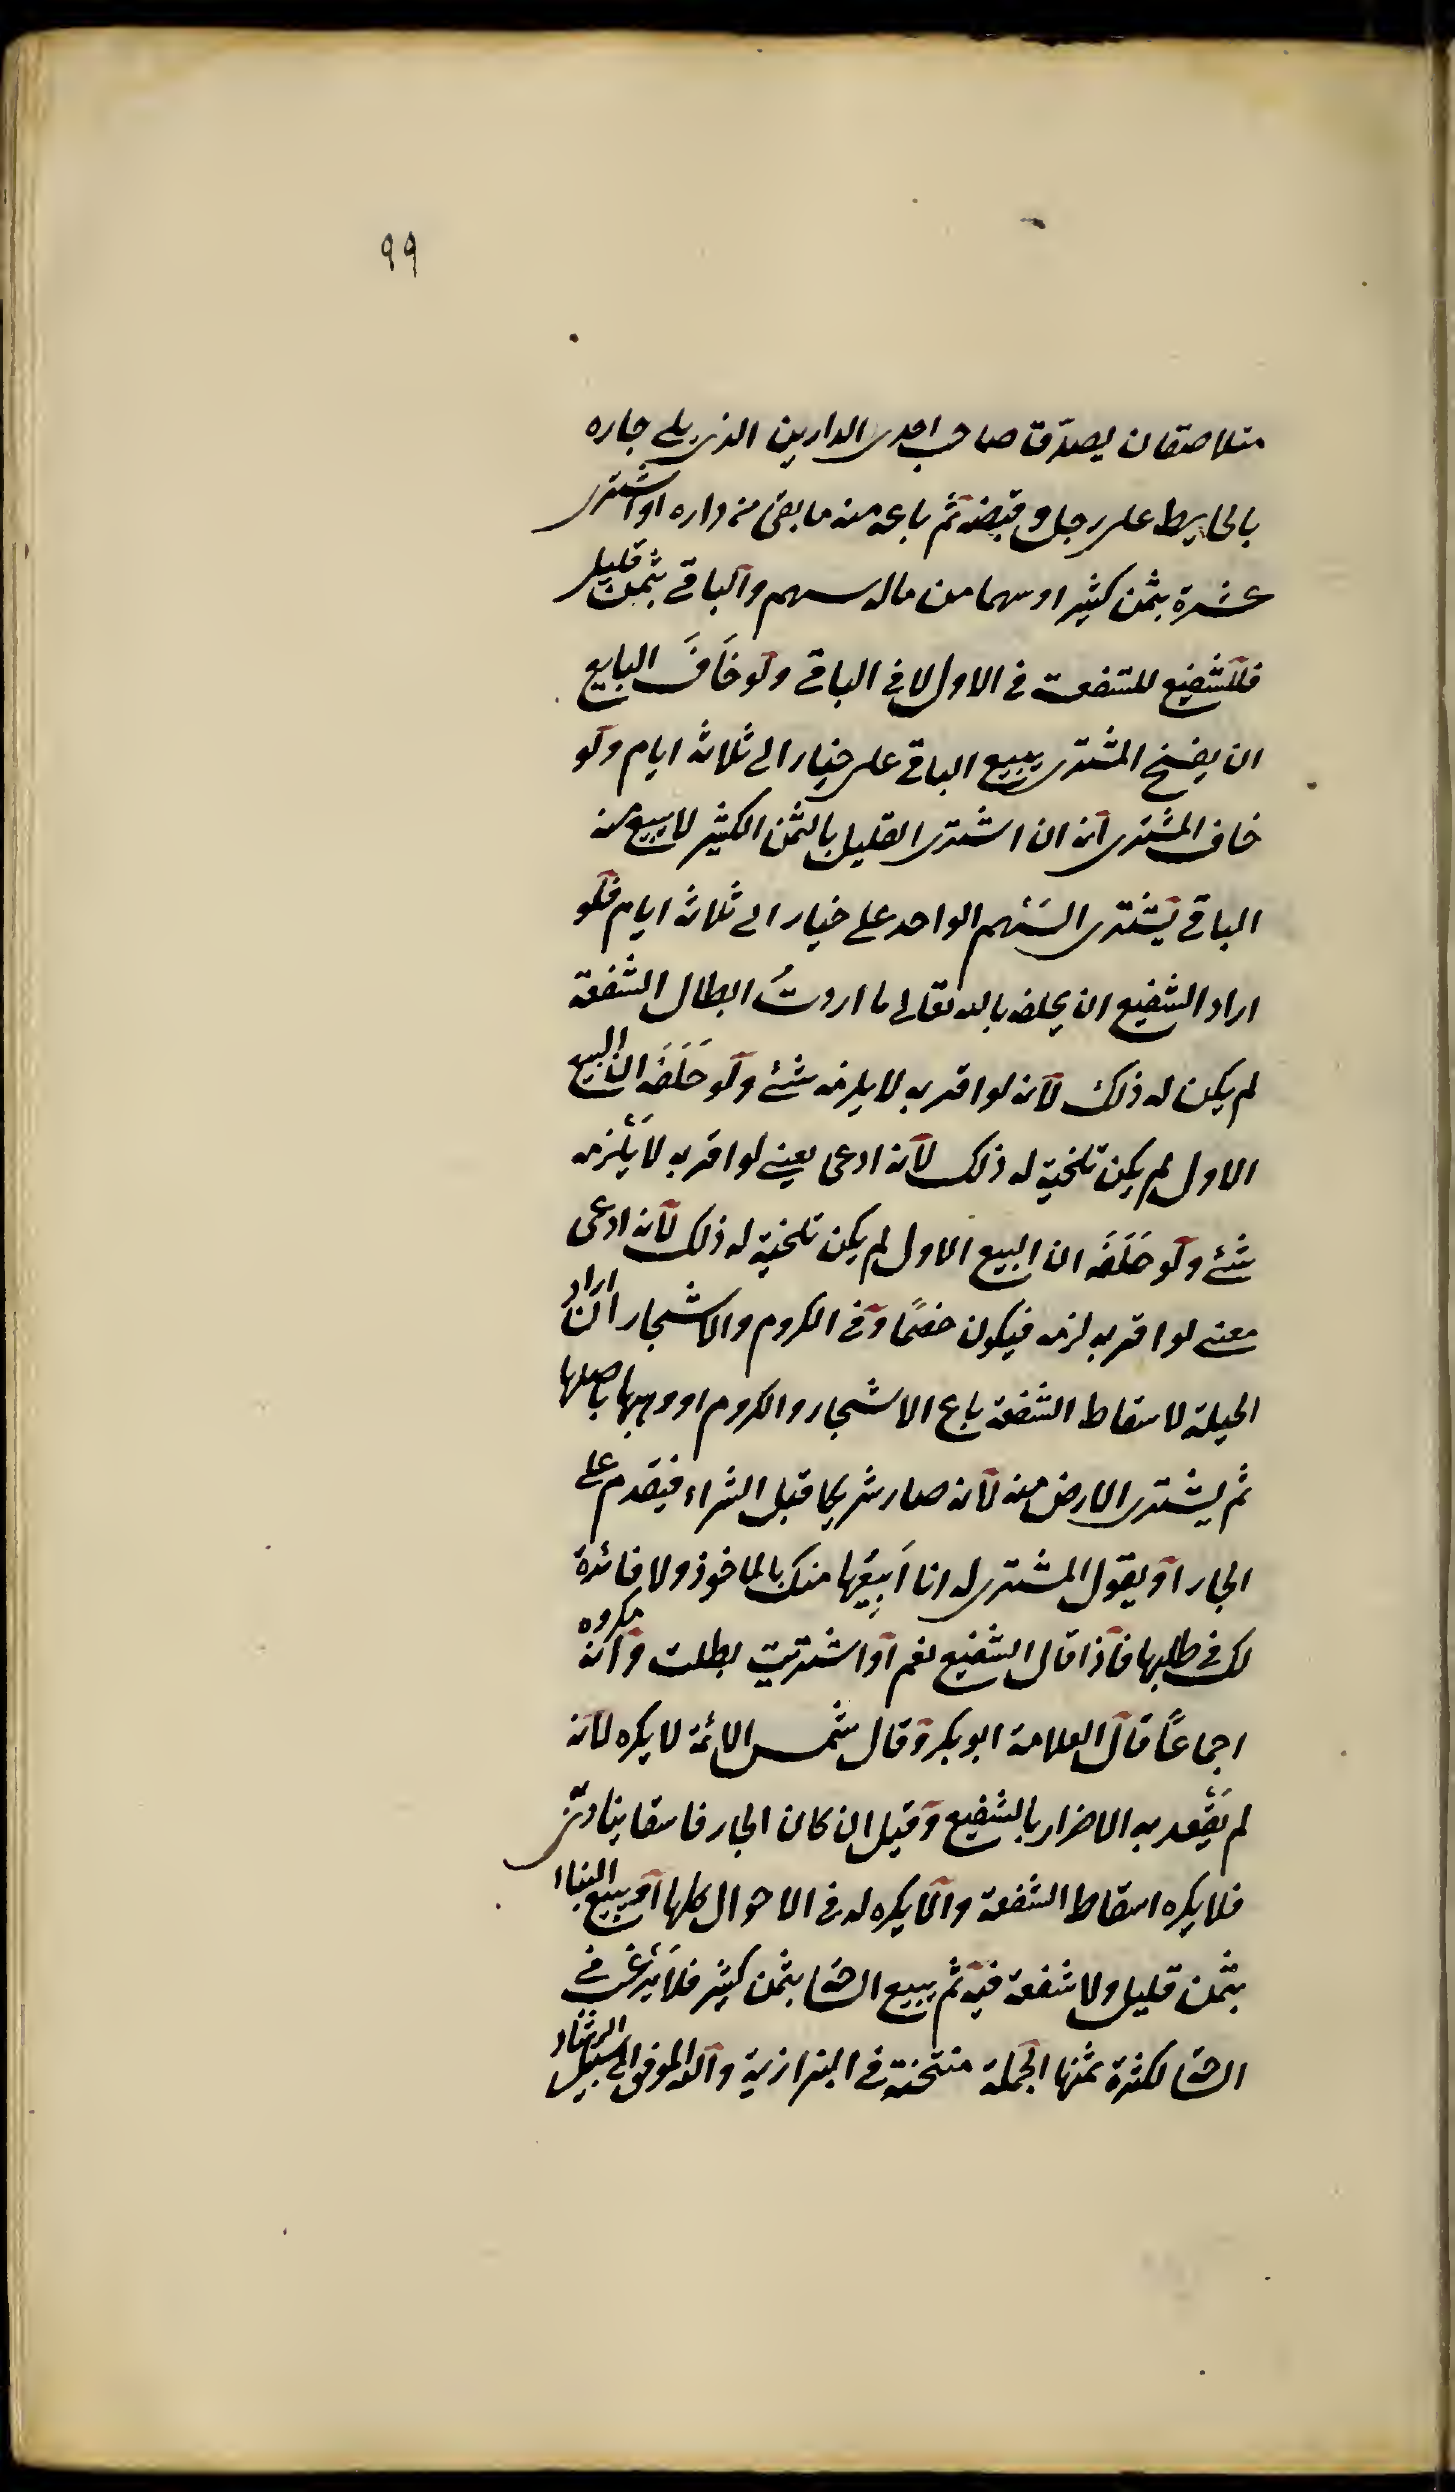 ٩٩
متلاصقان يصدّق صاحب احدى الدارين الذى يلى جاره
بالحايط على رجل وقبضه ثم باعه منه ما بقى من داره او اشترى
عشرة بثمن كثير او سهما من ماله سهم والباقى بثمن قليل
فللشفيع للشفعة فى الاول لا فى الباقى ولو خَافَ البايع
ان يفسخ المشترى يبيع الباقى على خيار الى ثلاثة ايام ولو
خاف المشترى انه ان اشترى القليل بالثمن الكثير لا يبيع منه
الباقى يشترى السَهم الواحد على خيار الى ثلاثة ايام فلو
اراد الشفيع ان يحلفه بالله تعالى ما اردتُ ابطال الشفعة
لم يكن له ذلك لانه لو اقر به لا يلزمه شئ ولو حَلَّفَه ان البيع
الاول لم يكن تلجئة له ذلك لانه ادعى يعنى لو اقر به لا يَلْزمه
شئ ولو حَلَّفَه ان البيع الاول لم يكن تلجئة له ذلك لانه ادعى
معنى لو اقر به لزمه فيكون خصمًا وفى الكروم والاشجار ان اراد
الحيلة لاسقاط الشفعة باع الاشجار والكروم او وهبها باصلها
ثم يشترى الارض منه لانه صار شريكا قبل الشراء فيقدم على
الجار او يقول المشترى له انا اَبيعُها منك بالماخوذ ولا فائدة
لك فى طلبها فاذا قال الشفيع نعم او اشتريت بطلت وانه مكروه
اجماعًا قال العلامة ابو بكر وقال شمس الائمة لا يكره لانه
لم يَقْصد به الاضرار بالشفيع وقيل ان كان الجار فاسقا يتاذى به
فلا يكره اسقاط الشفعة والا يكره له فى الاحوال كلها او يبيع البناء
بثمن قليل ولا شفعة فيه ثم يبيع بثمن كثير فلا يَرْغب فى
لكثرة ثمنها الجملة فى البزازية والله الموفق الى سبيل الرشاد